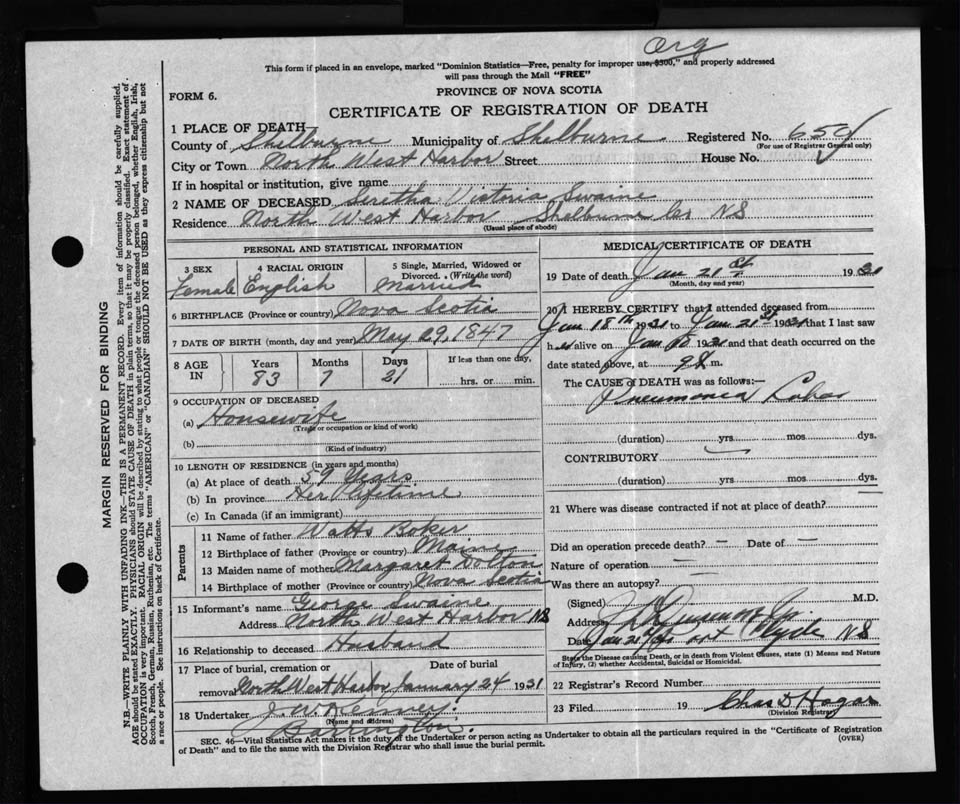 Org
This form if placed in an envelope, marked "Dominion Statistics—Free, penalty for improper use, $300," and properly addressed
will pass through the Mail "FREE"
PROVINCE OF NOVA SCOTIA
FORM 6.
CERTIFICATE OF REGISTRATION OF DEATH
1 PLACE OF DEATH
County of Shelburne Municipality of Shelburne Registered No.
(For use of Registrar General only)
City or Town North West Harbor Street House No.
If in hospital or institution, give name
2 NAME OF DECEASED Seretha Victoria Swaine
Residence North West Harbor Shelburne Co. NS
(Usual place of abode)
PERSONAL AND STATISTICAL INFORMATION
3 SEX 4 RACIAL ORIGIN 5 Single, Married, Widowed or
Divorced. (Write the word)
Female English Married
6 BIRTHPLACE (Province or country) Nova Scotia
7 DATE OF BIRTH (month, day and year) May 29, 1847
8 AGE IN Years Months Days If less than one day,
83 7 21 hrs. or min.
9 OCCUPATION OF DECEASED
(a) Housewife
(Trade or occupation or kind of work)
(b)
(Kind of industry)
10 LENGTH OF RESIDENCE (in years and months)
(a) At place of death 59 Years
(b) In province Her lifetime
(c) In Canada (if an immigrant)
Parents
11 Name of father Watts Boker
12 Birthplace of father (Province or country) Maine
13 Maiden name of mother Margaret Dolton
14 Birthplace of mother (Province or country) Nova Scotia
15 Informant's name George Swaine
Address North West Harbor NS
16 Relationship to deceased Husband
17 Place of burial, cremation or Date of burial
removal North West Harbor January 24 1931
18 Undertaker J. W. Kenney
(Name and address)
Barrington
MEDICAL CERTIFICATE OF DEATH
19 Date of death Jan 21st 1931
(Month, day and year)
20 I HEREBY CERTIFY that I attended deceased from
Jan 15th 1931 to Jan 21st 1931 that I last saw
h alive on Jan 1931 and that death occurred on the
date stated above, at m.
The CAUSE OF DEATH was as follows:—
Pneumonia Lobar
(duration) yrs. mos. dys.
CONTRIBUTORY
(duration) yrs. mos. dys.
21 Where was disease contracted if not at place of death?
Did an operation precede death? — Date of —
Nature of operation —
Was there an autopsy?
(Signed) M.D.
Address
Date Jan 21 Clyde NS
State the Disease causing Death, or in death from Violent Causes, state (1) Means and Nature
of Injury, (2) whether Accidental, Suicidal or Homicidal.
22 Registrar's Record Number
23 Filed 19 Chas D. Hogar
(Division Registrar)
SEC. 46—Vital Statistics Act makes it the duty of the Undertaker or person acting as Undertaker to obtain all the particulars required in the "Certificate of Registration
of Death" and to file the same with the Division Registrar who shall issue the burial permit. (OVER)
MARGIN RESERVED FOR BINDING
N.B.—WRITE PLAINLY WITH UNFADING INK—THIS IS A PERMANENT RECORD. Every item of information should be carefully supplied.
AGE should be stated EXACTLY. PHYSICIANS should STATE CAUSE OF DEATH in plain terms, so that it may be properly classified. Exact statement of
OCCUPATION is very important. RACIAL ORIGIN will be described by stating to what people or tongue the deceased person belonged, whether English, Irish,
Scotch, French, German, Russian, Ruthenian, etc. The terms "AMERICAN" or "CANADIAN" SHOULD NOT BE USED as they express citizenship but not
a race or people. See instructions on back of Certificate.